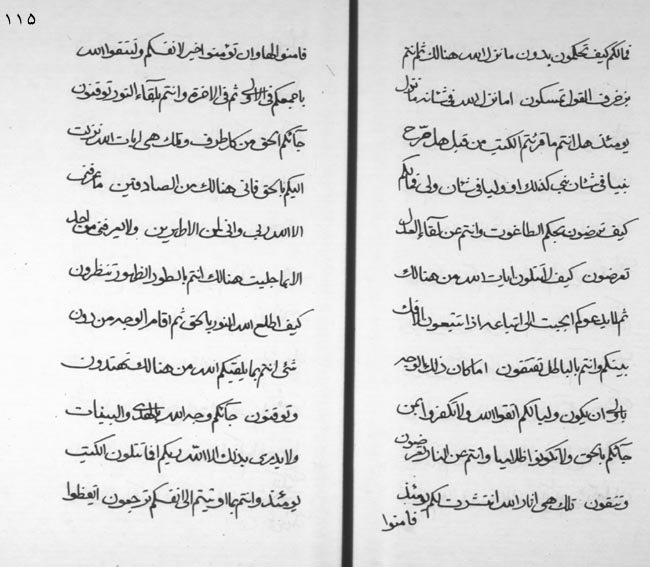 فمالكم كيف تحكمون بدون ما نزل الله هنالك ثم انتم
بزخرف القول تمسكون اما نزل الله في شانه ما نزل
يومئذ هل انتم ما قرئتم الكتب من قبل هل صرح
بنبا في شان نبي كذلك او وليا في شان ولي فمالكم
كيف ترضون بحكم الطاغوت وانتم عن لقاء العدل
تعرضون كيف لا تتلون ايات الله من هنالك
ثم لما يدعوكم الجبت الى اتباعه اذا تتبعون الافك
بينكم وانتم بالباطل تتفقون اما كان ذلك الوجه
بالحق ان يكون وليا لكم اتقوا الله ولا تكفروا بمن
جائكم بالحق ولا تكونوا ظلاليا وانتم عن النار تعرضون
وتتقون تلك هي نار الله انتشرت لكم يومئذ
فامنوا
١١٥
فامنوا بالله وان تؤمنوا خير لانفسكم ولتتقوا الله
باجمعكم في الاولى ثم في الاخرة وانتم بلقاء النور توقنون
جائكم الحق من كل طرف وتلك هي ايات الله نزلت
اليكم بالحق فاني هنالك من الصادقين ما عرفني
الا الله ربي واني لمن الاطهرين ولا يعرفني من احد
الا بما جليت هنالك انتم بالطور الظهور تنظرون
كيف اطلع الله النور بالحق ثم اقام الوجه من دون
شئ انتم بما يلقيكم الله من هنالك تهتدون
وتوقنون جائكم وجه الله بالهدى والبينات
ولا يدرى بذلك الا الله ربكم افلا تتلون الكتب
يومئذ وانتم بما اوتيتم الى انفسكم ترجعون اتعظوا